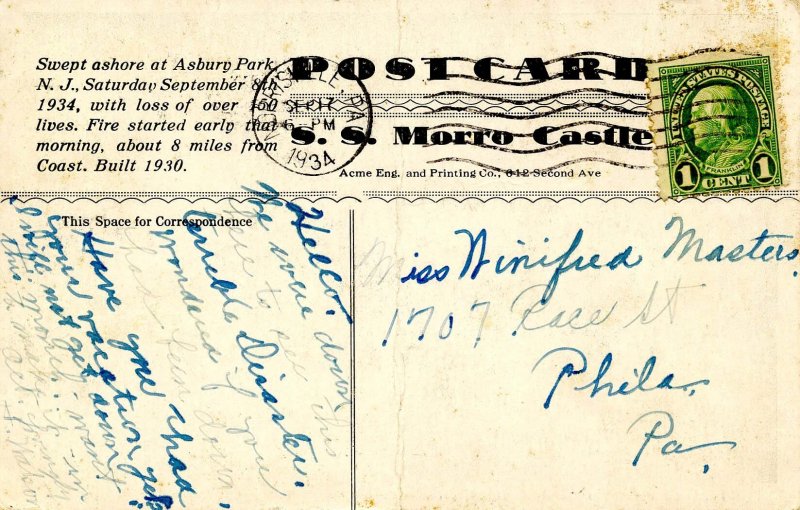 Swept ashore at Asbury Park,
N. J., Saturday September 8th
1934, with loss of over 150
lives. Fire started early that
morning, about 8 miles from
Coast. Built 1930.
POST CARD
S. S. Morro Castle
Acme Eng. and Printing Co., 612 Second Ave
SEP 17
6 - PM
1934
PA
UNITED STATES POSTAGE
FRANKLIN
1 CENT 1
This Space for Correspondence
Hello.
We were down
here to see this
terrible Disaster.
Wonderd if you
had been down.
Have you had
your vacation yet?
I will not get down
this
Miss Winifred Masters,
1707 Race St
Phila,
Pa,